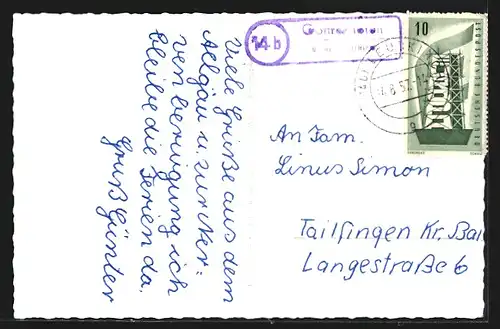 Viele Grüße aus dem
Allgäu u. zur Ner:
ven beruigung ich
bleibe die Ferien da.
Gruß Günter
14b
10
DEUTSCHE BUNDESPOST
An Fam.
Linus Simon
Tailfingen Kr. Bal
Langestraße 6